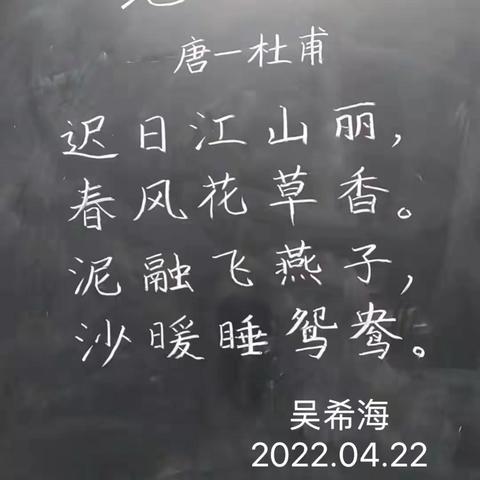 唐一杜甫
迟日江山丽，
春风花草香。
泥融飞燕子，
沙暖睡鸳鸯。
吴希海
2022.04.22